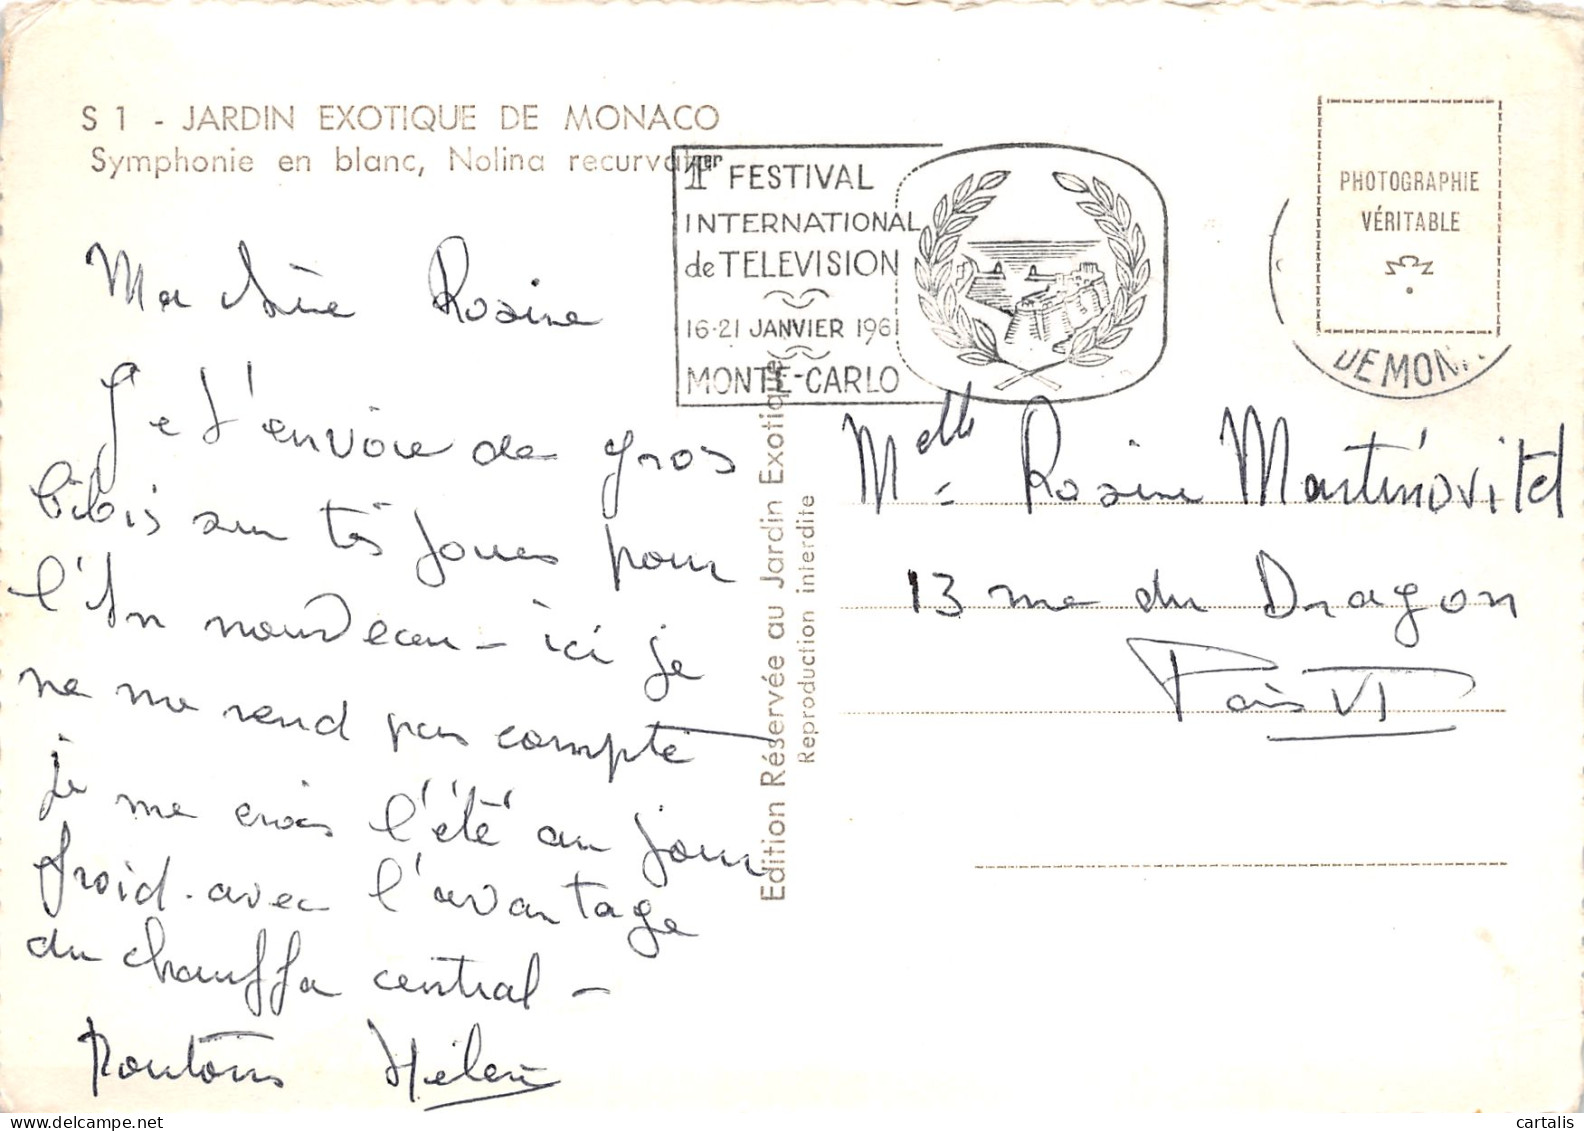 S 1 - JARDIN EXOTIQUE DE MONACO
Symphonie en blanc, Nolina
1er FESTIVAL
INTERNATIONAL
de TELEVISION
16-21 JANVIER 1961
MONTE-CARLO
PHOTOGRAPHIE
VÉRITABLE
DE MON
Ma chérie Rosine
Je t'envoie de gros
bibis sur tes joues pour
l'An nouveau - ici je
ne me rend pas compte
je me crois l'été au jour
froid. avec l'avantage
du chauffa central -
Hélène
Edition Réservée au Jardin Exotique
Reproduction interdite
Melle Rosine
13 rue du Dragon
Paris VI
www.delcampe.net
cartalis